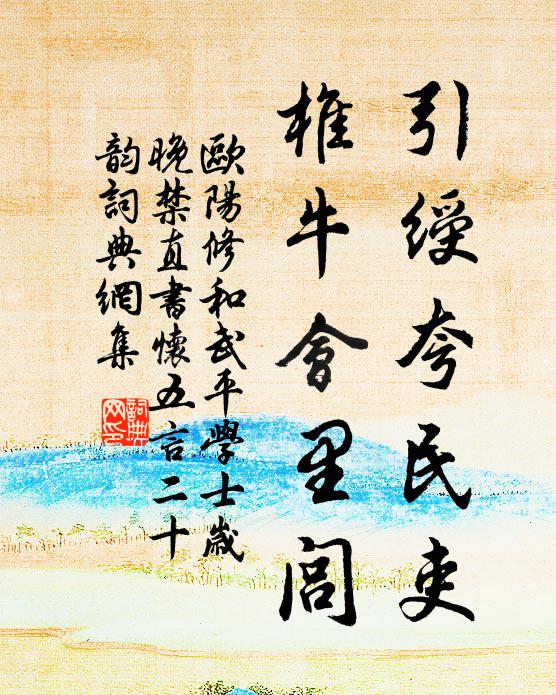 引綬夸民吏
椎牛會里閭
歐陽修和武平學士歲
晚禁直書懷五言二十
韵詞典網集
詞典網印